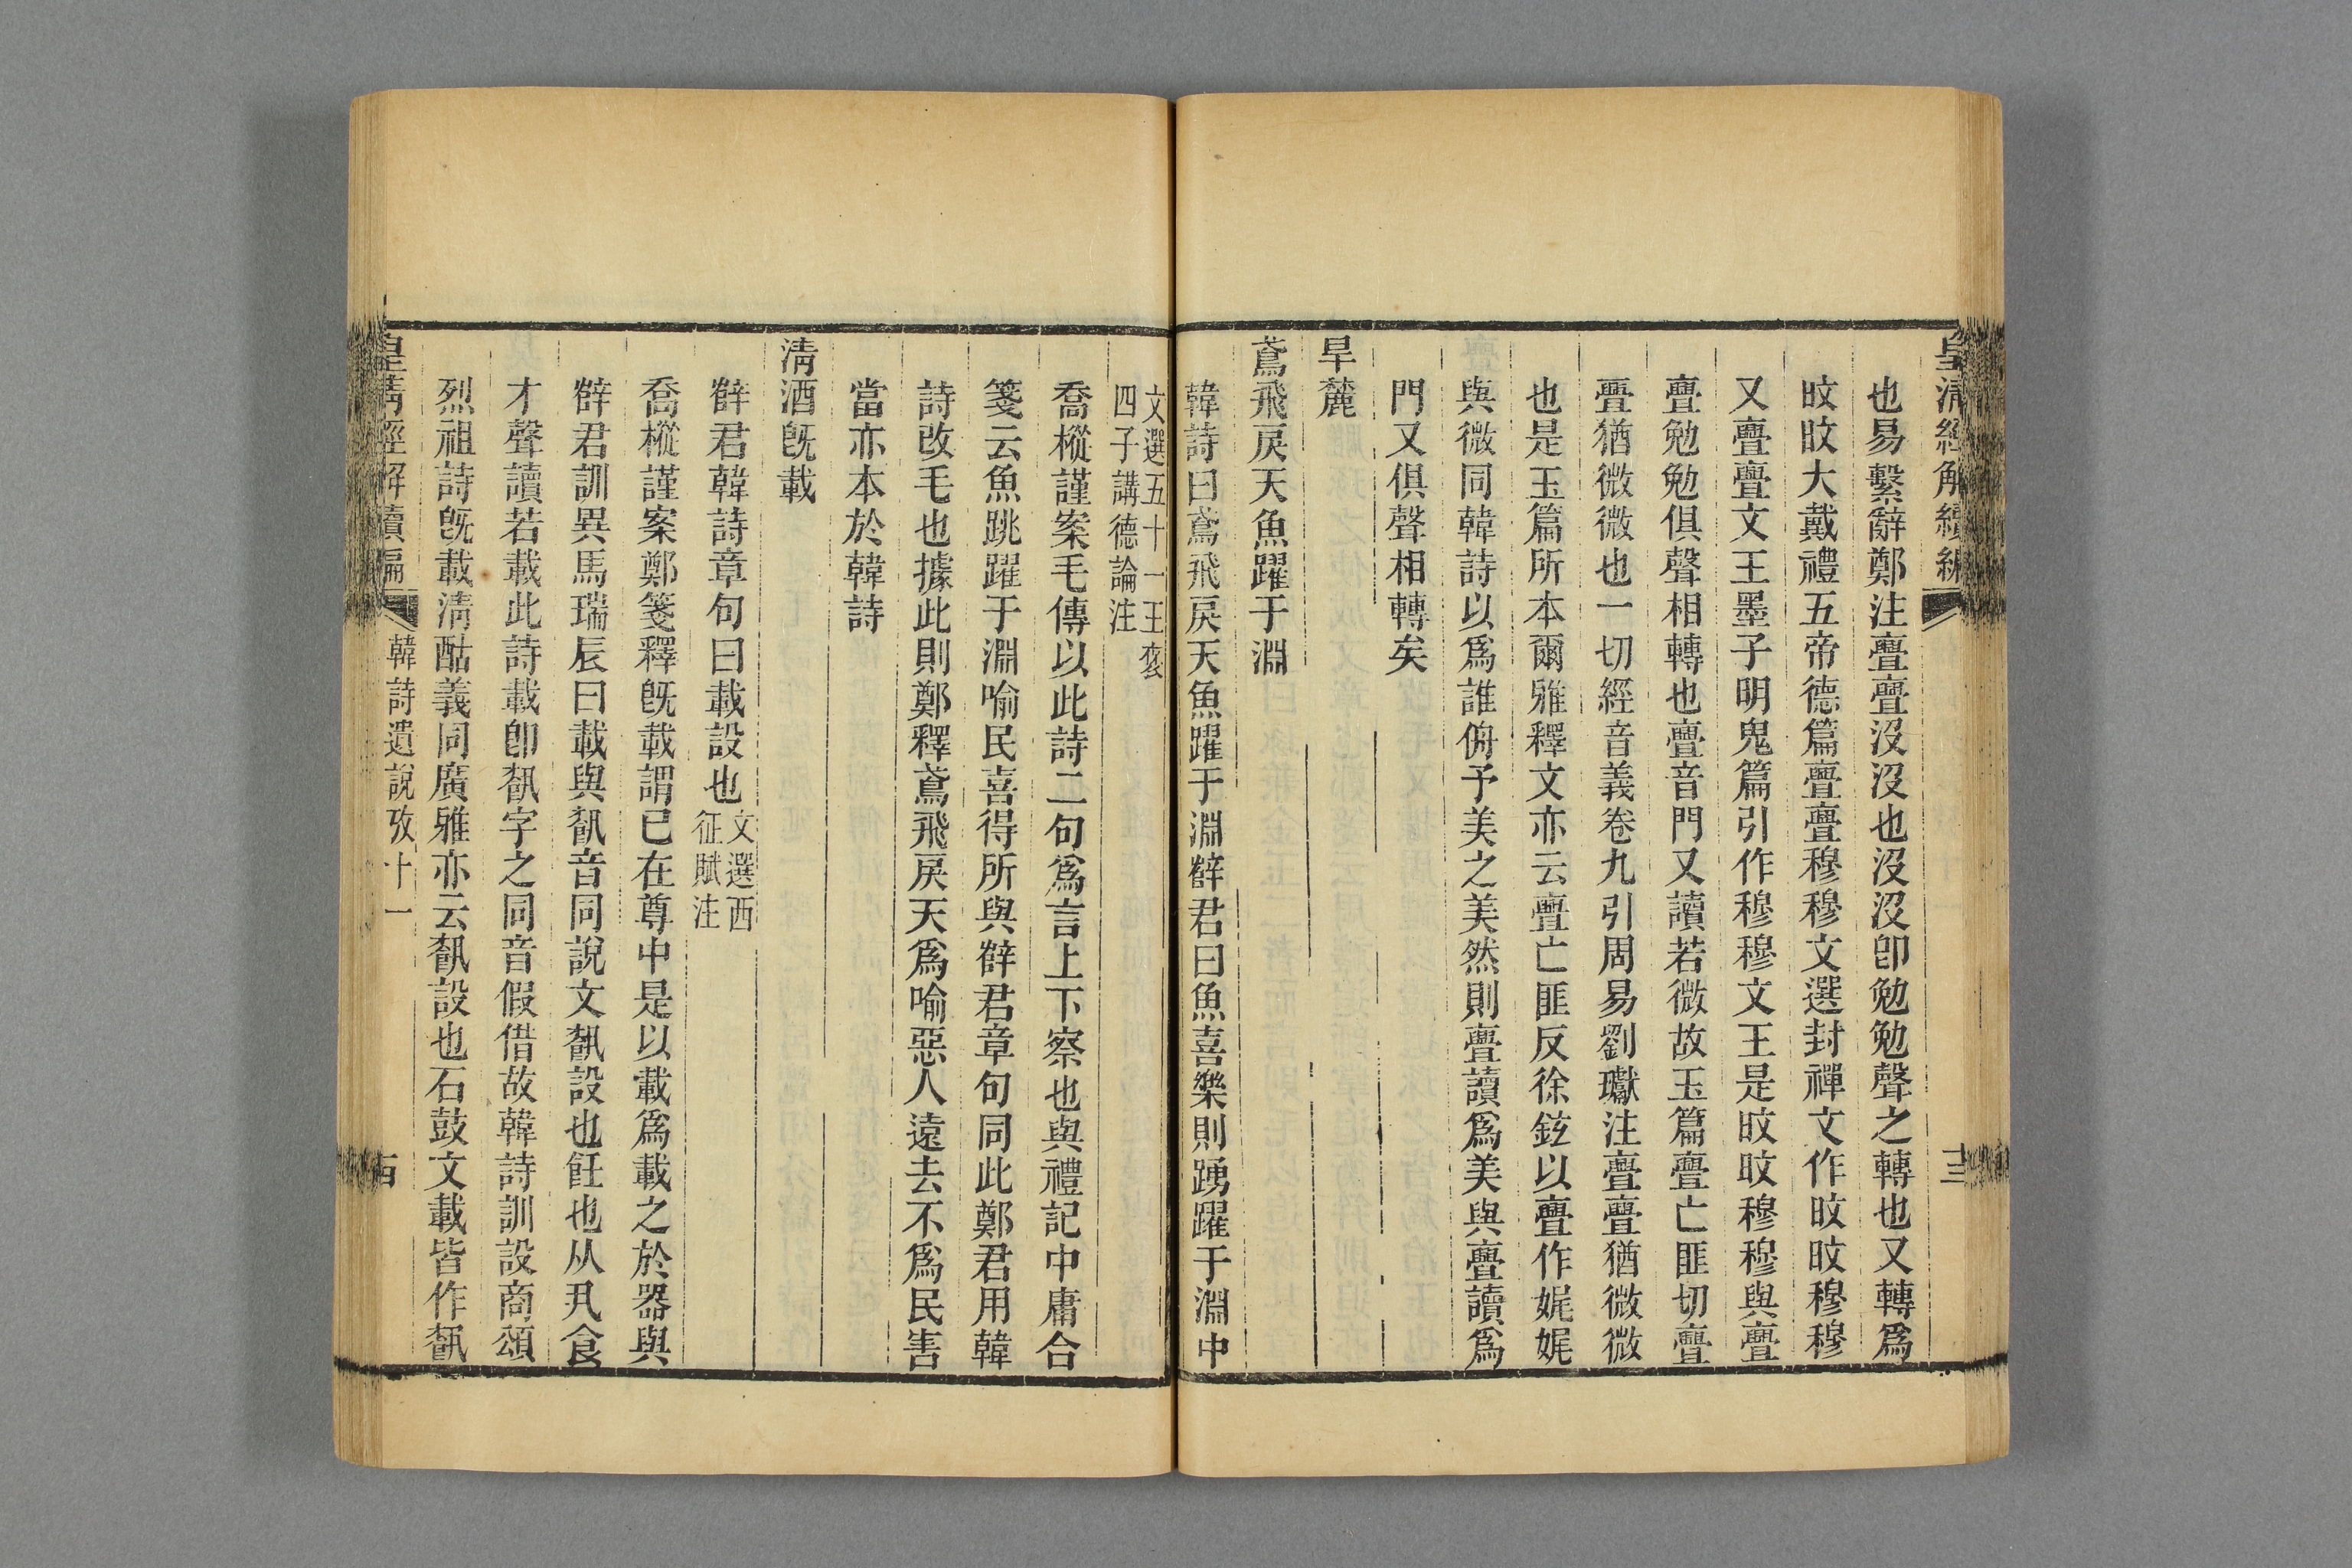 皇淸經解續編
三
也易繫辭鄭注亹亹沒沒也沒沒卽勉勉聲之轉也又轉爲
旼旼大戴禮五帝德篇亹亹穆穆文選封禪文作旼旼穆穆
又亹亹文王墨子明鬼篇引作穆穆文王是旼旼穆穆與亹
亹勉勉俱聲相轉也亹音門又讀若微故玉篇亹亡匪切亹
亹猶微微也一切經音義卷九引周易劉瓛注亹亹猶微微
也是玉篇所本爾雅釋文亦云亹亡匪反徐鉉以亹作娓娓
與微同韓詩以爲誰侜予美之美然則亹讀爲美與亹讀爲
門又俱聲相轉矣
旱麓
鳶飛戾天魚躍于淵
韓詩曰鳶飛戾天魚躍于淵薛君曰魚喜樂則踴躍于淵中
文選五十一王襃
四子講德論注
喬樅謹案毛傳以此詩二句爲言上下察也與禮記中庸合
箋云魚跳躍于淵喻民喜得所與薛君章句同此鄭君用韓
詩改毛也據此則鄭釋鳶飛戾天爲喻惡人遠去不爲民害
當亦本於韓詩
淸酒旣載
薛君韓詩章句曰載設也
文選西
征賦注
喬樅謹案鄭箋釋旣載謂已在尊中是以載爲載之於器與
薛君訓異馬瑞辰曰載與䬤音同說文䬤設也飪也从丮食
才聲讀若載此詩載卽䬤字之同音假借故韓詩訓設商頌
烈祖詩旣載淸酤義同廣雅亦云䬤設也石鼓文載皆作䬤
皇淸經解續編
韓詩遺說攷十一